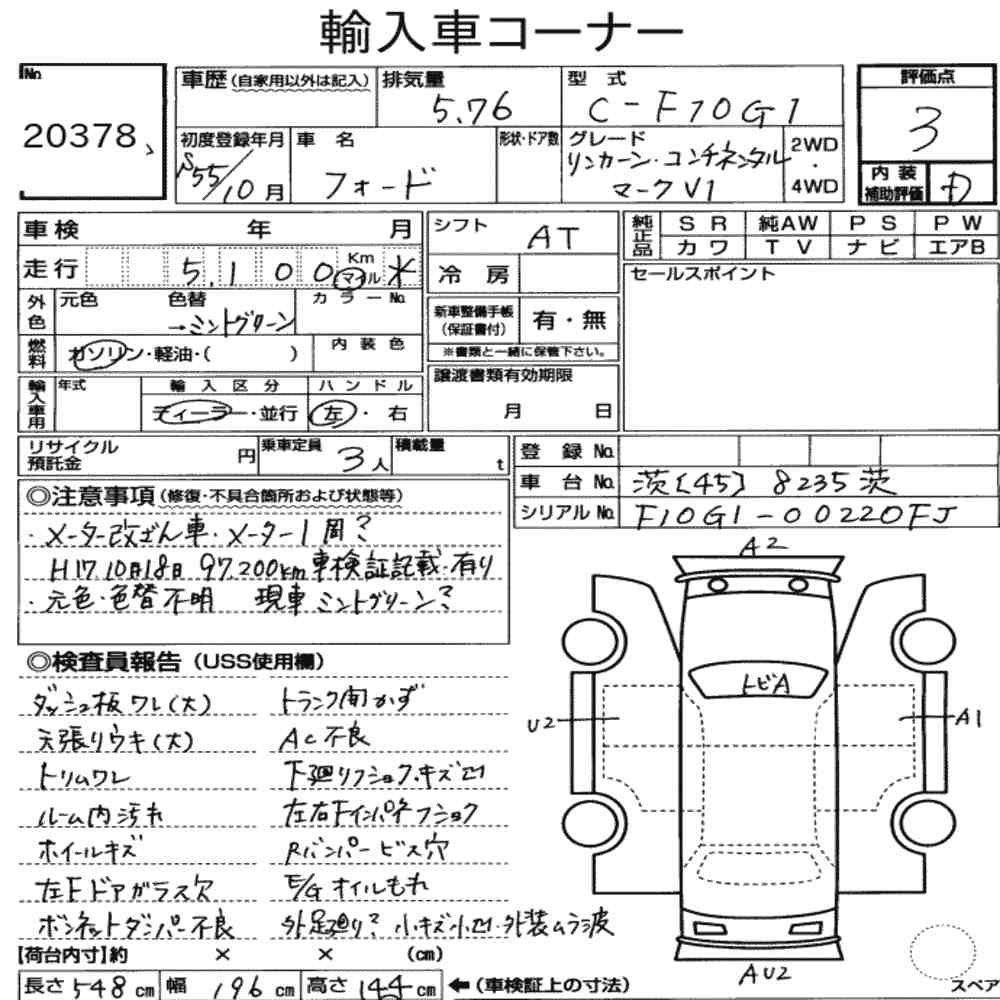 輸入車コーナー
No.
20378
車歴(自家用以外は記入)
排気量
5.76
型式
C-F10G1
評価点
3
初度登録年月
S55/10月
車名
フォード
形状・ドア数
グレード
リンカーン・コンチネンタル
マークV1
2WD
・
4WD
内装
補助評価
D
車検 年 月
走行 5,100 Km マイル *
外色
元色
色替
→ミントグリーン
カラーNo.
燃料
ガソリン・軽油・( )
内装色
輸入車用
年式
輸入区分
ディーラー・並行
ハンドル
左・右
シフト
AT
冷房
新車整備手帳
(保証書付)
有・無
※書類と一緒に保管下さい。
譲渡書類有効期限
月 日
純正品
SR 純AW PS PW
カワ TV ナビ エアB
セールスポイント
リサイクル
預託金
円
乗車定員
3人
積載量
t
登録No.
車台No. 茨[45]8235茨
シリアルNo. F10G1-00220FJ
◎注意事項(修復・不具合箇所および状態等)
・メーター改ざん車・メーター1周?
H17.10月18日 97,200km車検証記載有り
・元色・色替不明 現車ミントグリーン?
◎検査員報告(USS使用欄)
ダッシュ板ワレ(大)
天張りウキ(大)
トリムワレ
ルーム内汚れ
ホイールキズ
左Fドアガラス穴
ボンネットダンパー不良
トランク開かず
AC不良
下廻りフショク、キズ凹
左右Fインパネフショク
Rバンパービス穴
E/Gオイルもれ
外足廻り?小キズ小凹・外装ムラ波
A2
トビA
U2
A1
AU2
スペア
【荷台内寸】約 × × (cm)
長さ548cm 幅196cm 高さ144cm ←(車検証上の寸法)